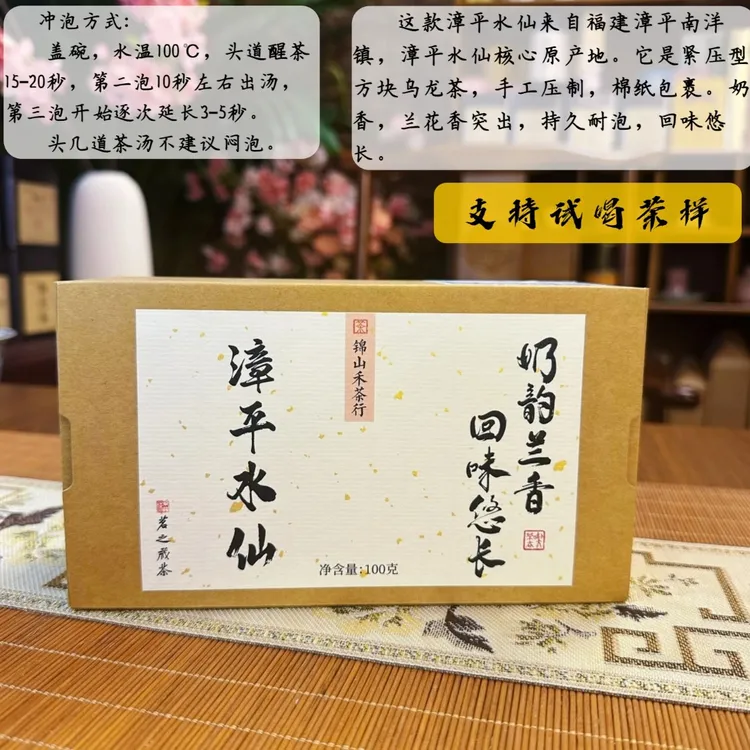 冲泡方式:
盖碗，水温100℃，头道醒茶
15-20秒，第二泡10秒左右出汤，
第三泡开始逐次延长3-5秒。
头几道茶汤不建议闷泡。
这款漳平水仙来自福建漳平南洋
镇，漳平水仙核心原产地。它是紧压型
方块乌龙茶，手工压制，棉纸包裹。奶
香，兰花香突出，持久耐泡，回味悠
长。
支持试喝茶样
茶
锦山禾茶行
漳平水仙
茗之戴茶
奶韵兰香
回味悠长
净含量:100克